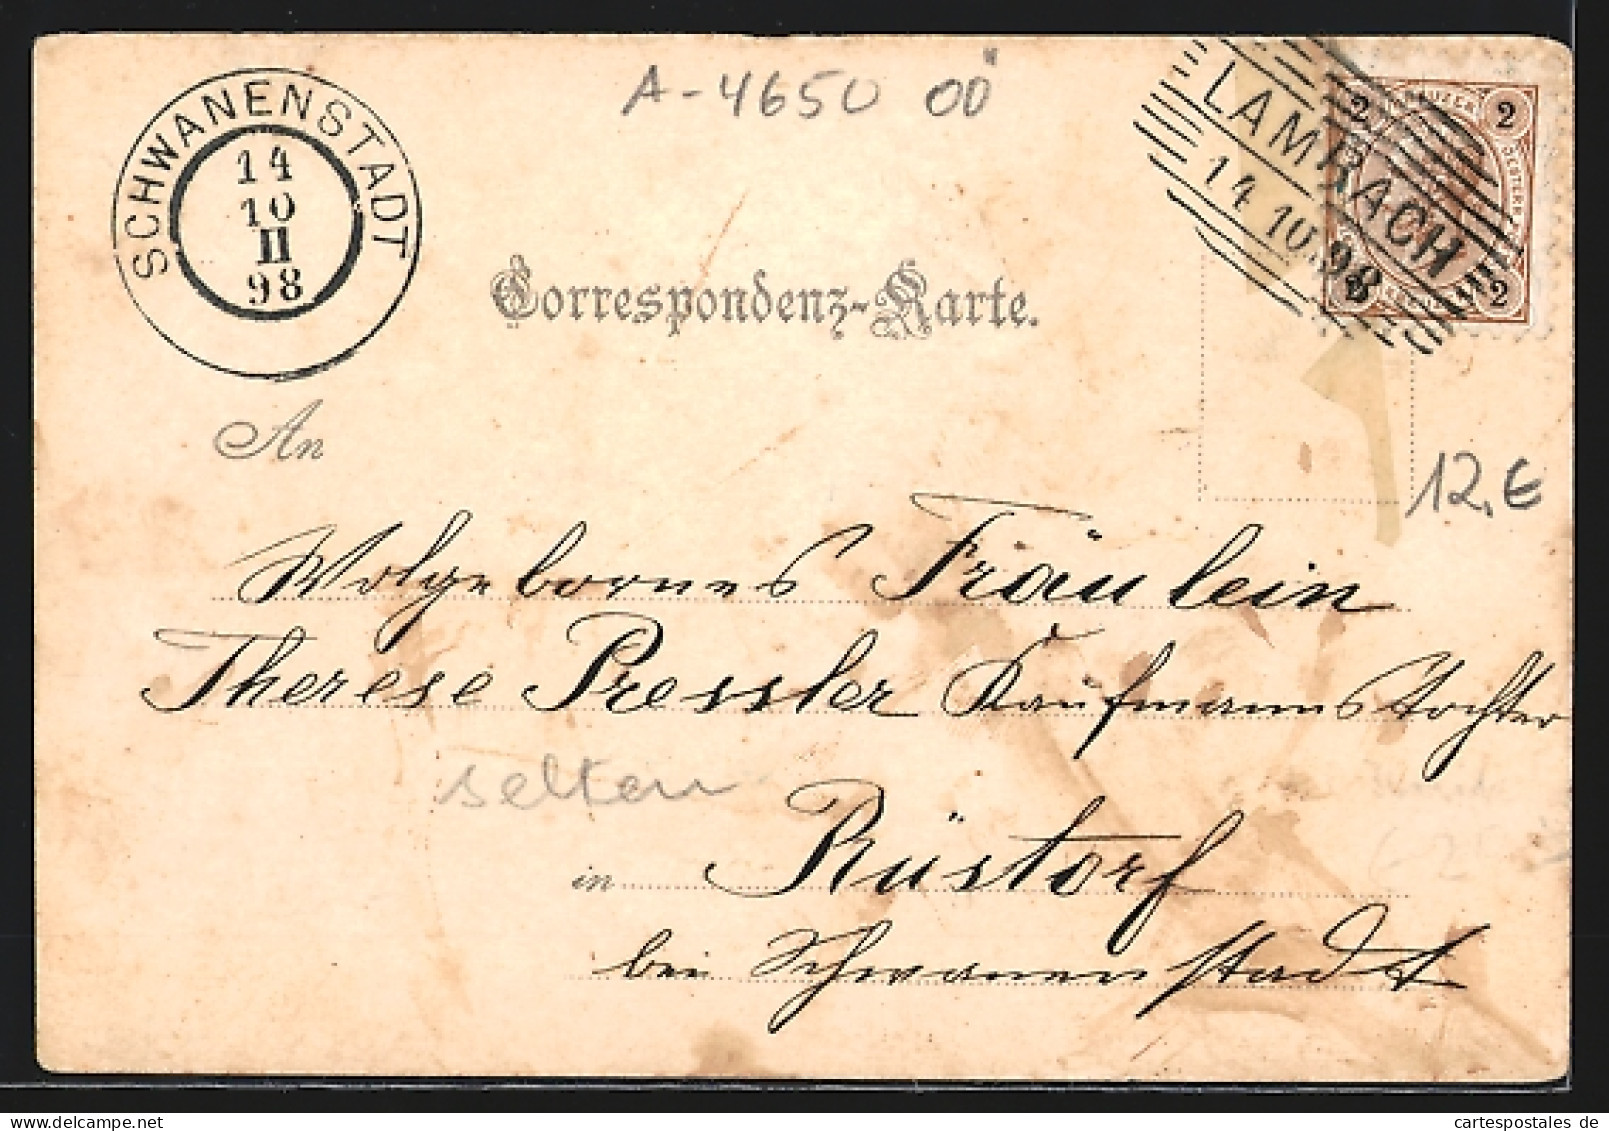 A-4650 00
SCHWANENSTADT
14
10
II
98
LAMBACH
14.10.98
2 2
2 2
Correspondenz-Karte.
An
12,€
Wolgebornes Fräulein
Therese Pressler Kaufmannstochter
selten
in Rüstorf
bei Schwanenstadt
cartespostales de